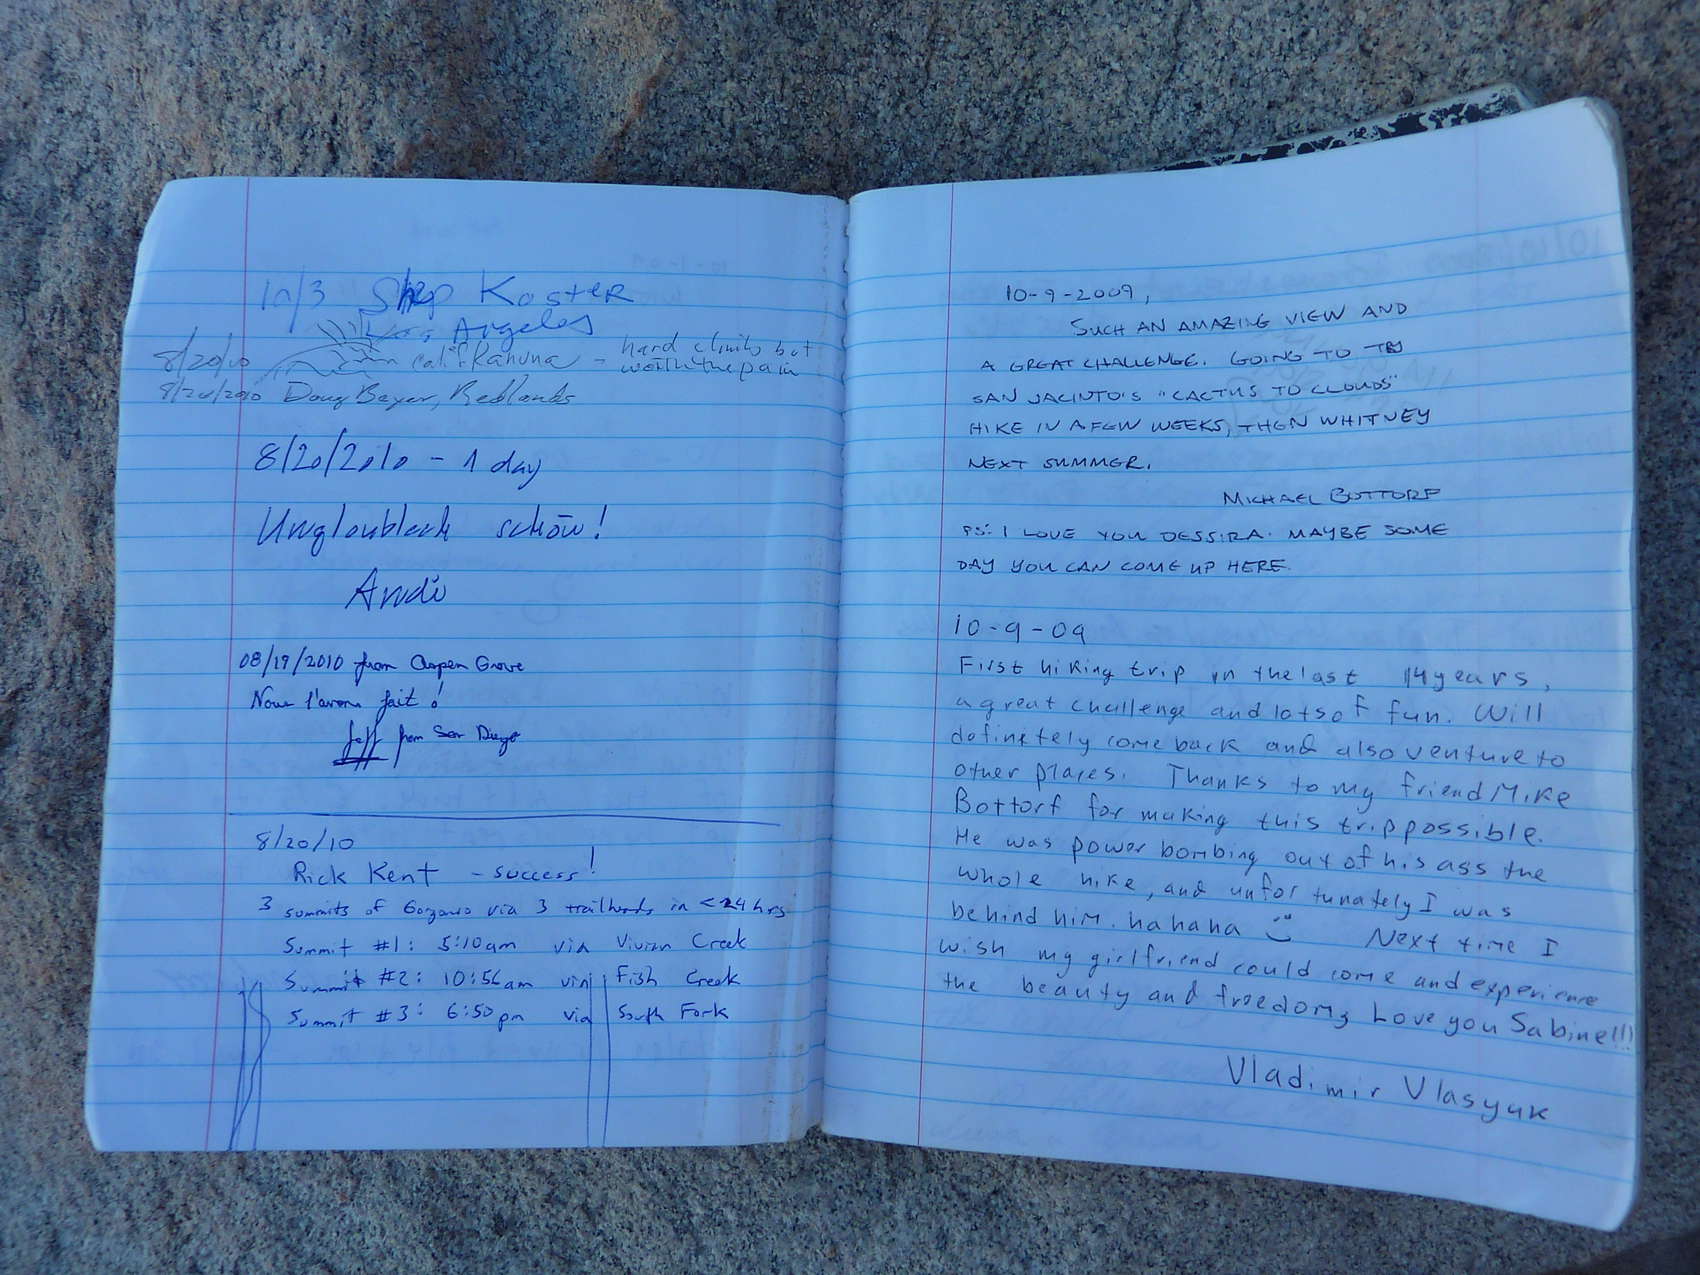 10/3 Shep Koster
Los Angeles
8/20/10 Calif Kahuna - hard climb but
worth the pain
8/20/2010 Doug Beyer, Redlands
8/20/2010 - 1 day
Unglaublich schön!
Andi
08/19/2010 from Aspen Grove
Nous l'avons fait!
Jeff from San Diego
8/20/10
Rick Kent - success!
3 summits of Gorgonio via 3 trailheads in <24 hrs
Summit #1: 5:10am via Vivian Creek
Summit #2: 10:56am via Fish Creek
Summit #3: 6:50pm via South Fork
10-9-2009,
SUCH AN AMAZING VIEW AND
A GREAT CHALLENGE. GOING TO TRY
SAN JACINTO'S "CACTUS TO CLOUDS"
HIKE IN A FEW WEEKS, THEN WHITNEY
NEXT SUMMER.
MICHAEL BOTTORF
PS: I LOVE YOU DESSIRA. MAYBE SOME
DAY YOU CAN COME UP HERE.
10-9-09
First hiking trip in the last 14 years,
a great challenge and lots of fun. Will
definetely come back and also venture to
other places. Thanks to my friend Mike
Bottorf for making this trip possible.
He was power bombing out of his ass the
whole hike, and unfortunately I was
behind him. hahaha Next time I
wish my girlfriend could come and experience
the beauty and freedom, Love you Sabine!!!
Vladimir Vlasyuk